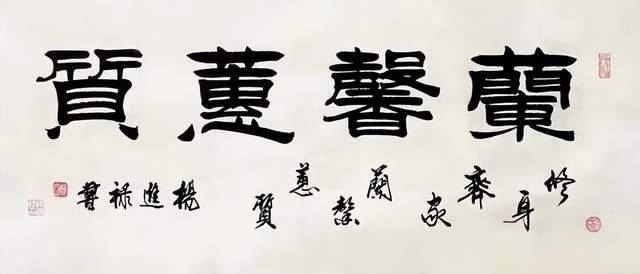 蘭馨蕙質
修身齊家蘭馨蕙質
楊進禄書